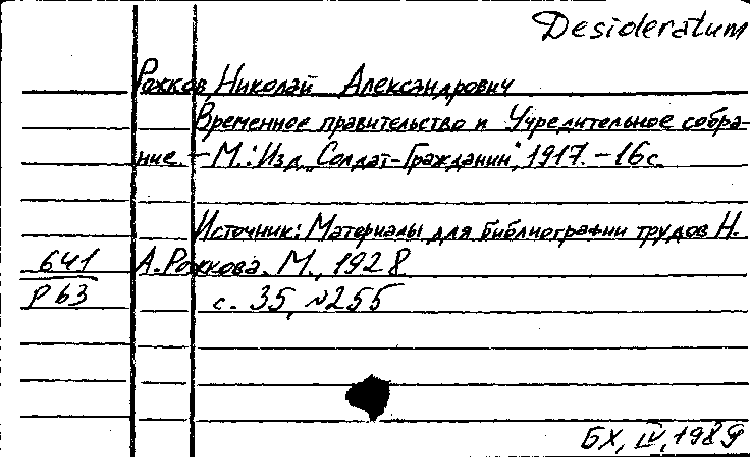 Desideratum
Рожков, Николай Александрович
Временное правительство и Учредительное собра-
ние. – М.: Изд. "Солдат-Гражданин", 1917. – 16 с.
Источник: Материалы для библиографии трудов Н.
641 А. Рожкова. М., 1928
Р 63 с. 35, №255
БХ, IV, 1989